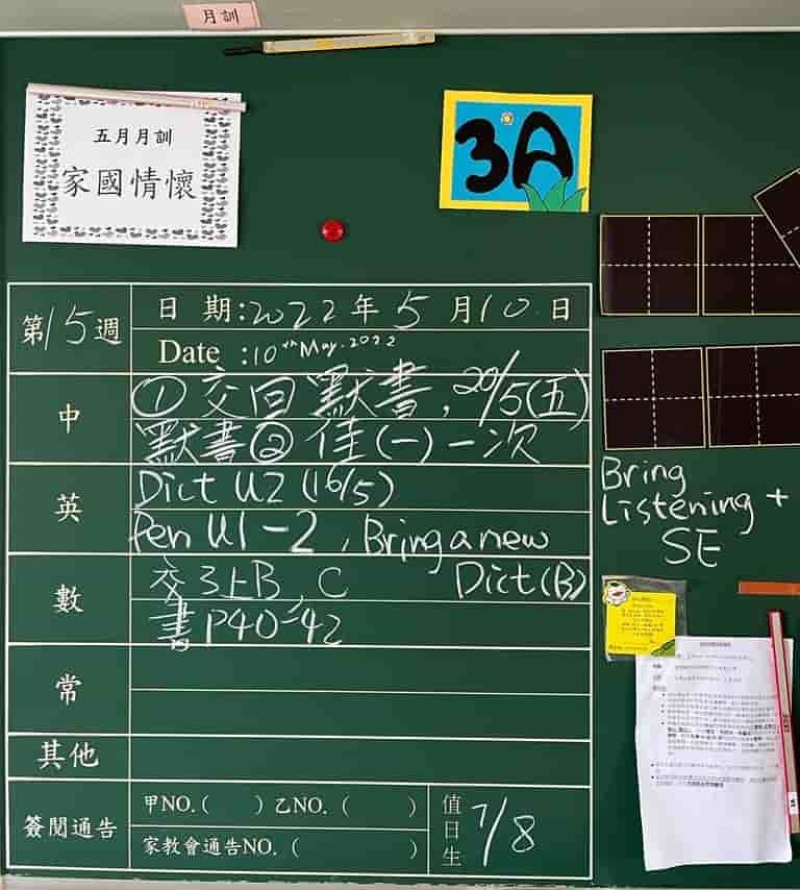 月訓
五月月訓
家國情懷
3A
第15週
日 期:2022年5月10日
Date :10th May.2022
中
① 交回默書, 20/5(五)
默書② 佳(一)一次
英
Dict U2 (16/5)
Pen U1-2, Bring a new
Dict(B)
數
交3上B, C
書P40-42
常
其他
簽閱通告
甲NO.( ) 乙NO.( )
家教會通告NO.( )
值日生
7/8
Bring
Listening +
SE